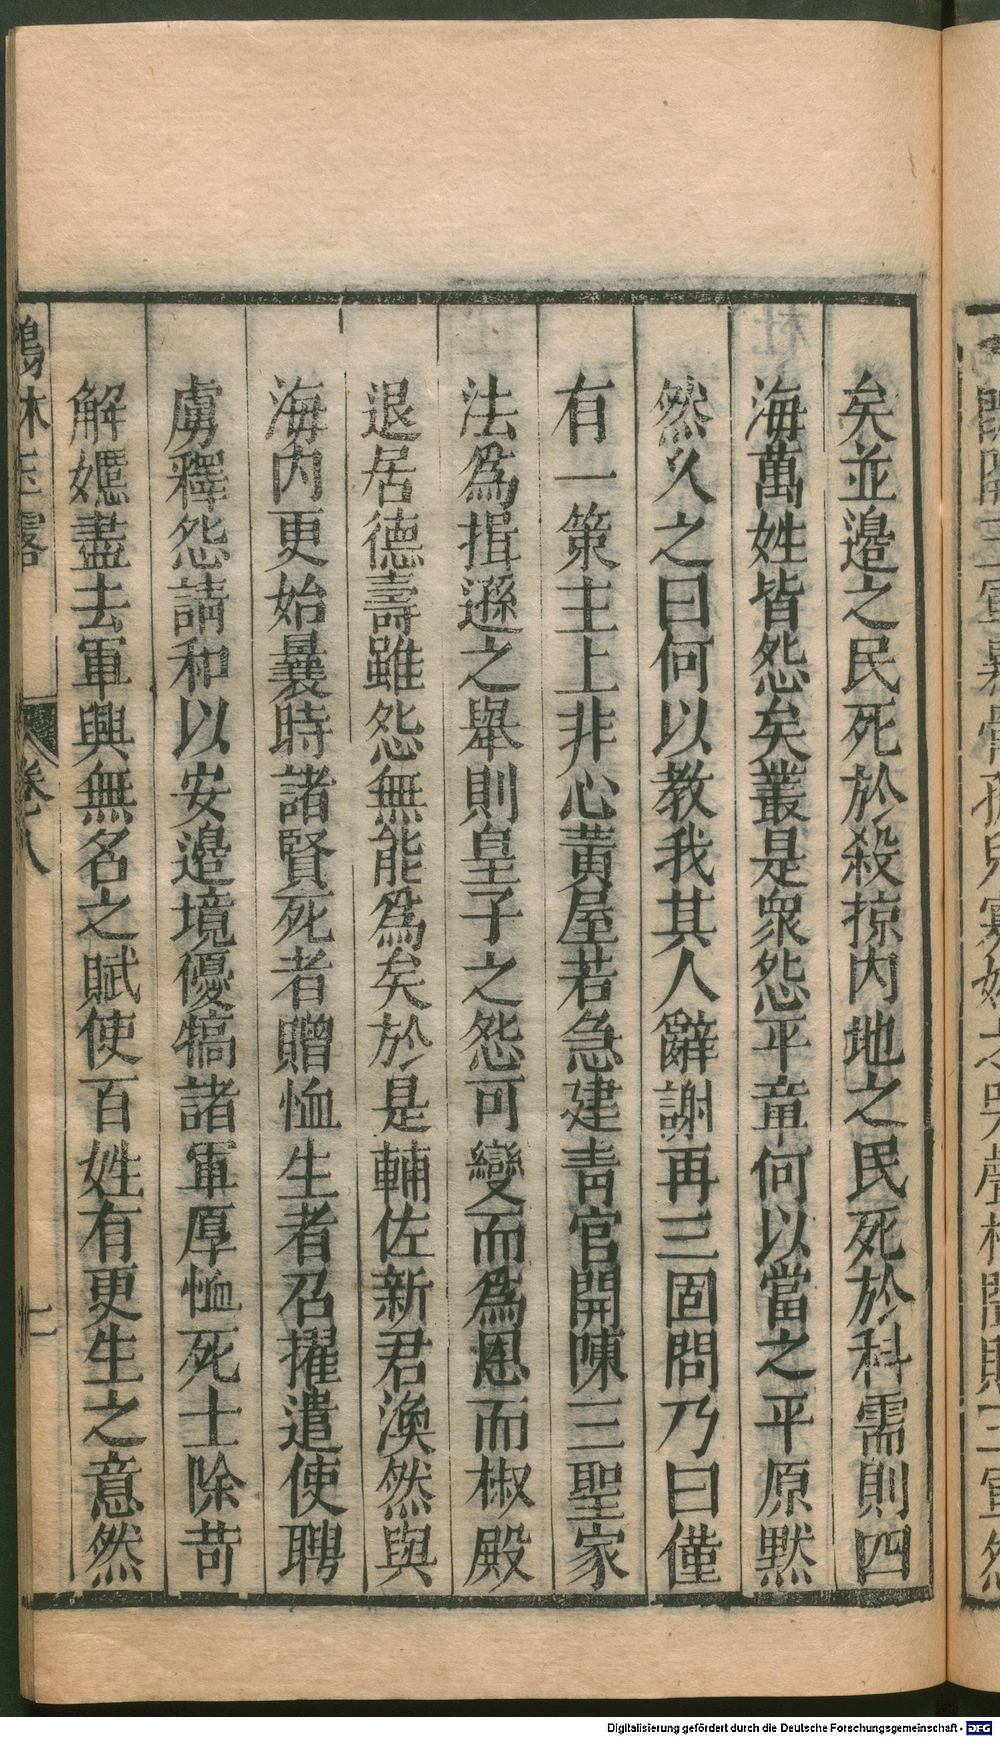 矣並邉之民死於殺掠内地之民死於科需則四
海萬姓皆怨矣叢是衆怨平章何以當之平原黙
然乆之曰何以教我其人辭謝再三固問乃曰僅
有一策主上非心黄屋若急建青宫開陳三聖家
法爲揖遜之舉則皇子之怨可變而爲恩而椒殿
退居德壽雖怨無能爲矣於是輔佐新君渙然與
海内更始曩時諸賢死者贈恤生者召擢遣使聘
虜釋怨請和以安邉境優犒諸軍厚恤死士除苛
解嬺盡去軍興無名之賦使百姓有更生之意然
鶴林玉露 卷八
Digitalisierung gefördert durch die Deutsche Forschungsgemeinschaft - DFG